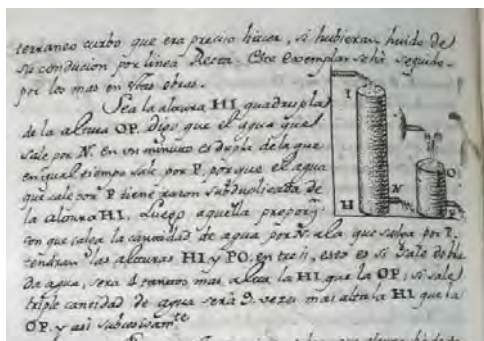 terraneo curbo que era preciso hàcer, si hubieran huido de
su conducion por linea Recta. Este exemplar se hà seguido
por los mas en sus obras.
Sea la altura HI quadrupla
de la altura OP. digo que el agua que
sale por N. en un minuto es dupla de la que
en igual tiempo sale por P. porque el agua
que sale por P tiene razon subduplicata de
la altura HI. Luego aquella proporz.
con que salga la cantidad de agua por N. a la que salga por P.
tendran las alturas HI y PO. entre si, esto es si sale dobla
da agua, sera 4 tantos mas alta la HI que la OP; si sale
triple cantidad de agua serà 9. vezes mas alta la HI que la
OP. y asi subcesivamte
I
H
N
O
P